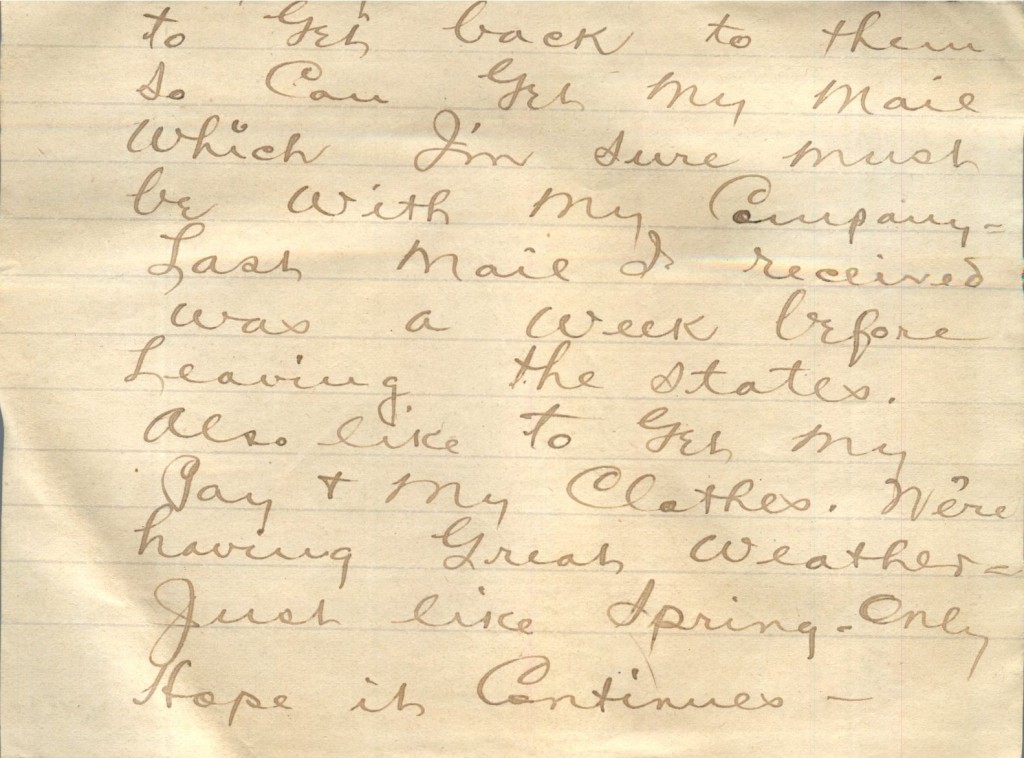 to Get back to them
So Can Get My Mail
Which I'm sure must
be With My Company-
Last Mail I received
was a Week before
Leaving the States.
Also like to Get My
Pay + My Clothes. We're
having Great Weather-
Just like Spring-Only
Hope it Continues -